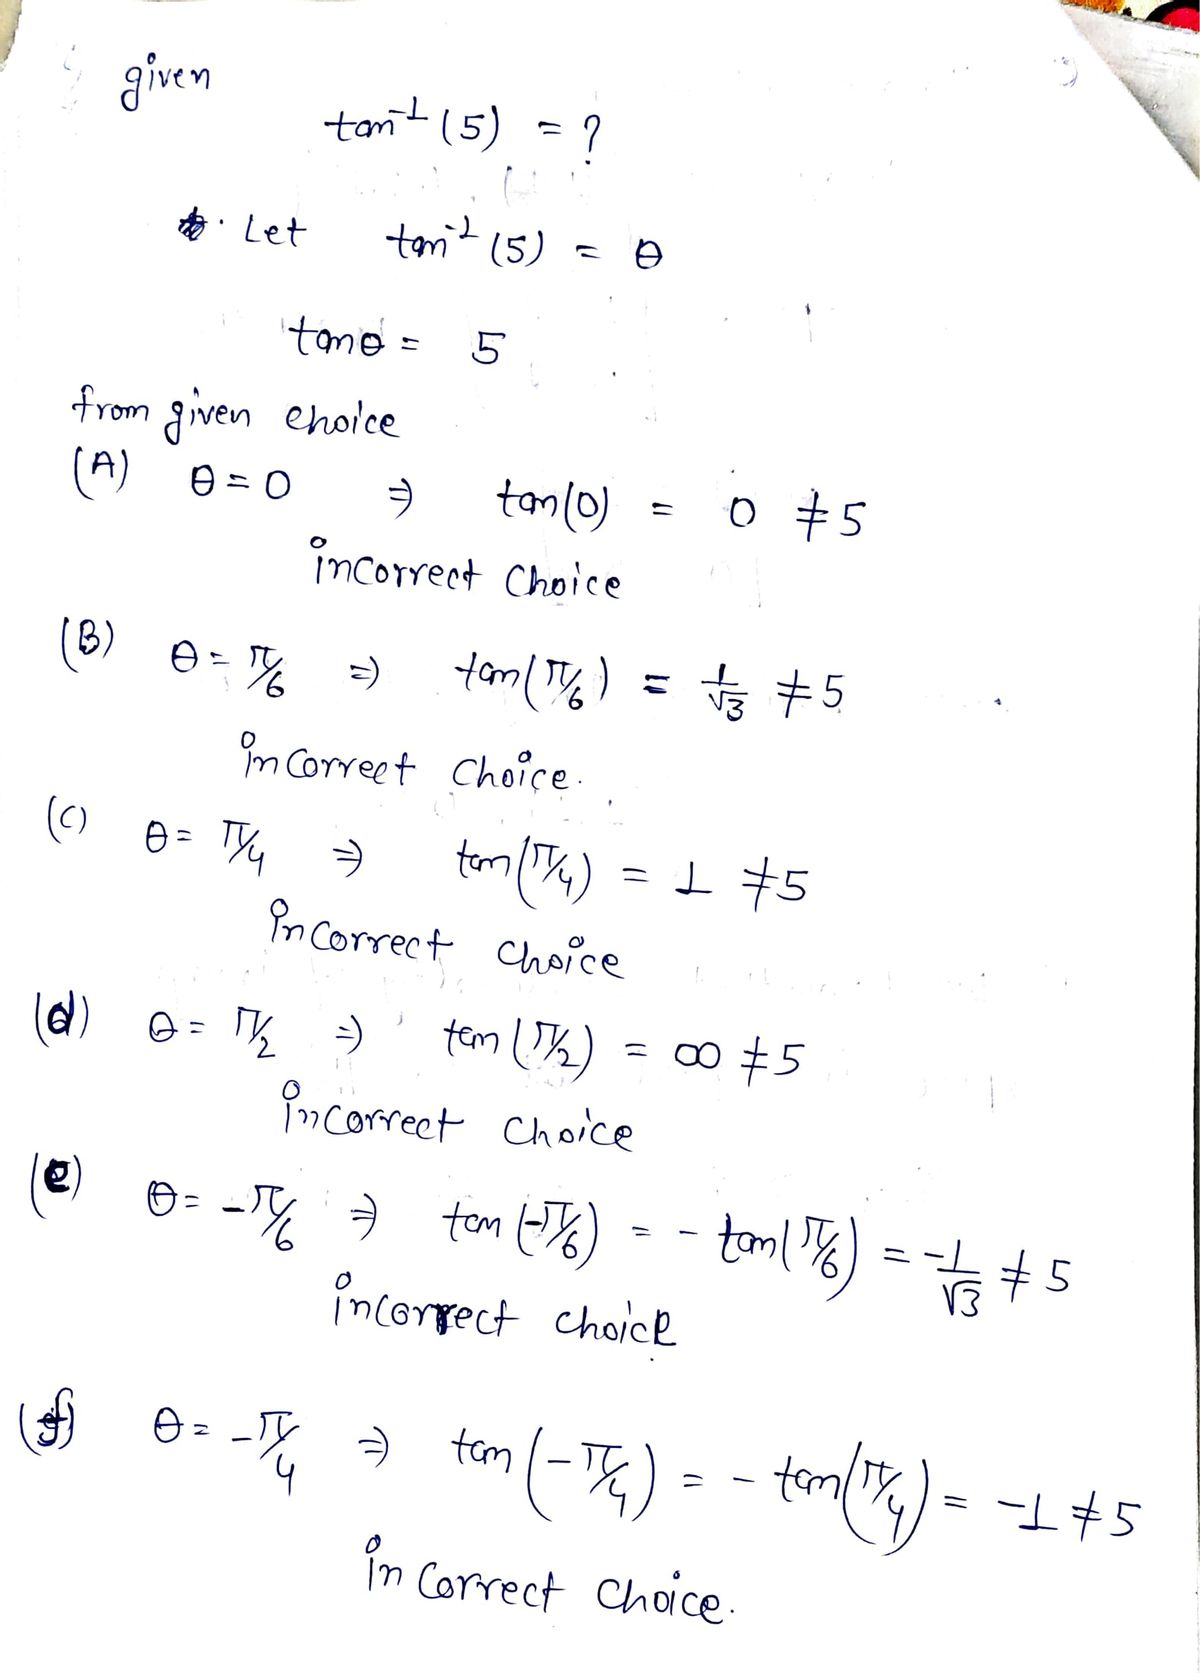 given
tan⁻¹(5) = ?
. Let tan⁻¹(5) = θ
tanθ = 5
from given choice
(A) θ = 0 ⇒ tan(0) = 0 ≠ 5
incorrect choice
(B) θ = π/6 ⇒ tan(π/6) = 1/√3 ≠ 5
incorrect choice.
(C) θ = π/4 ⇒ tan(π/4) = 1 ≠ 5
incorrect choice
(d) θ = π/2 ⇒ tan(π/2) = ∞ ≠ 5
incorrect choice
(e) θ = -π/6 ⇒ tan(-π/6) = - tan(π/6) = -1/√3 ≠ 5
incorrect choice
(f) θ = -π/4 ⇒ tan(-π/4) = - tan(π/4) = -1 ≠ 5
incorrect choice.